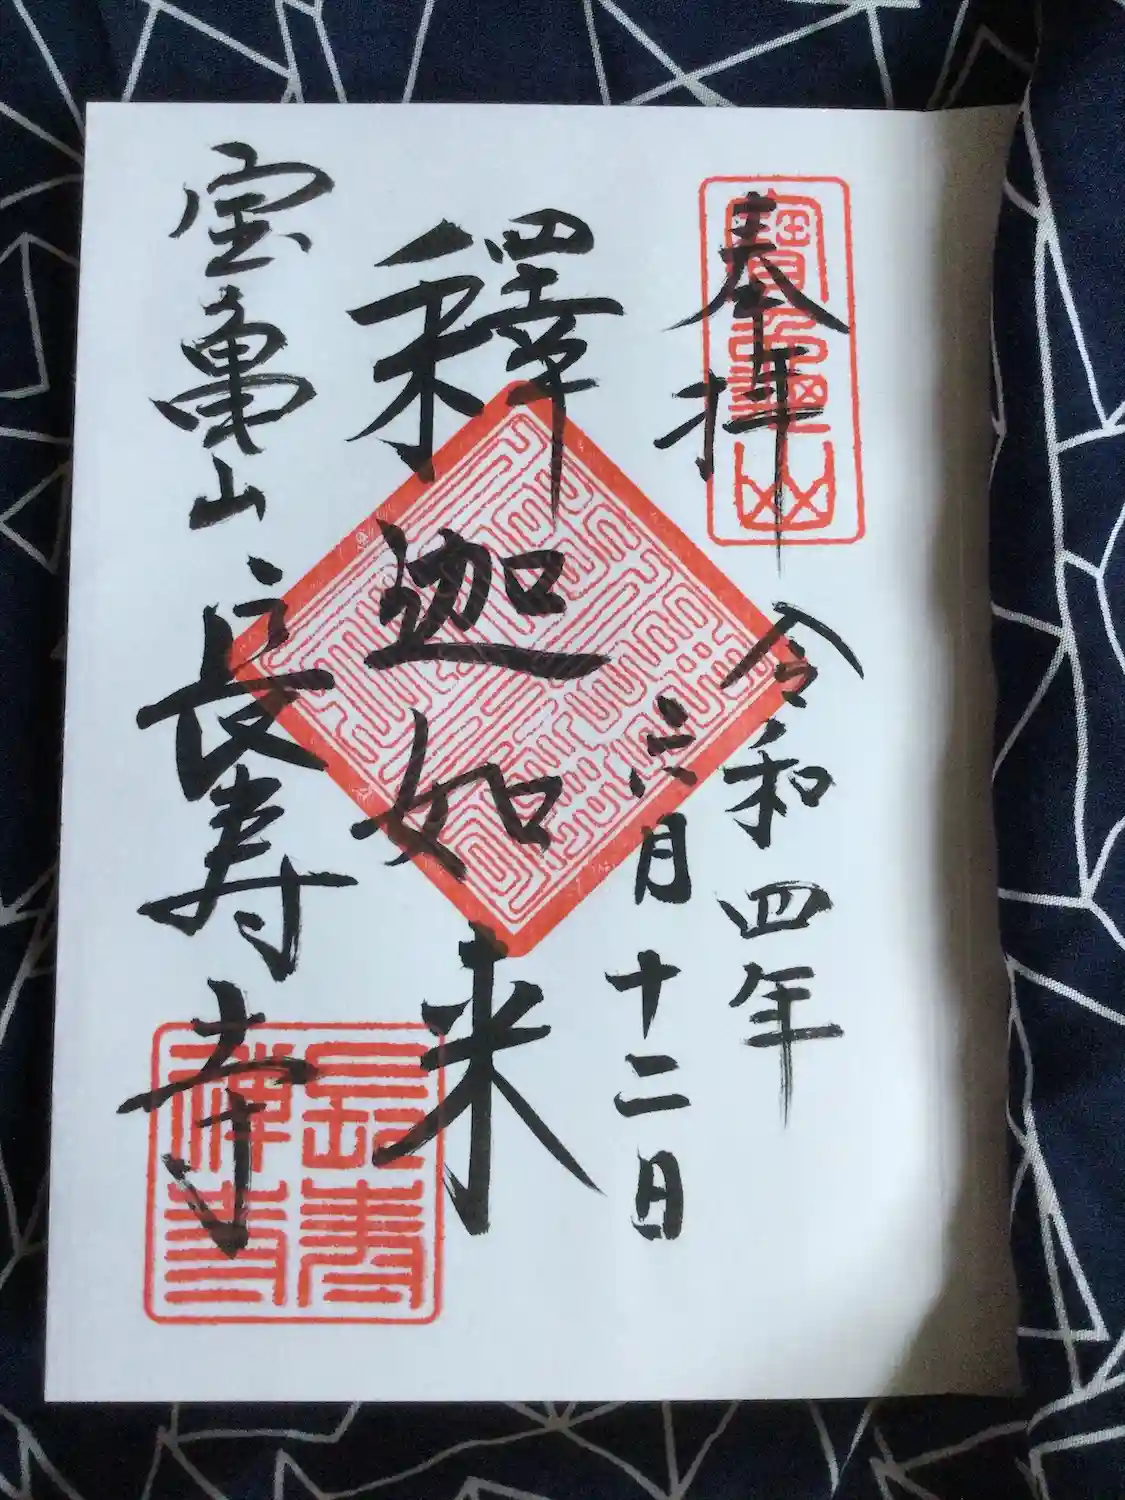 奉拝
令和四年
六月十二日
釋迦如来
宝亀山
長寿寺
寶龜山
長壽
禅寺